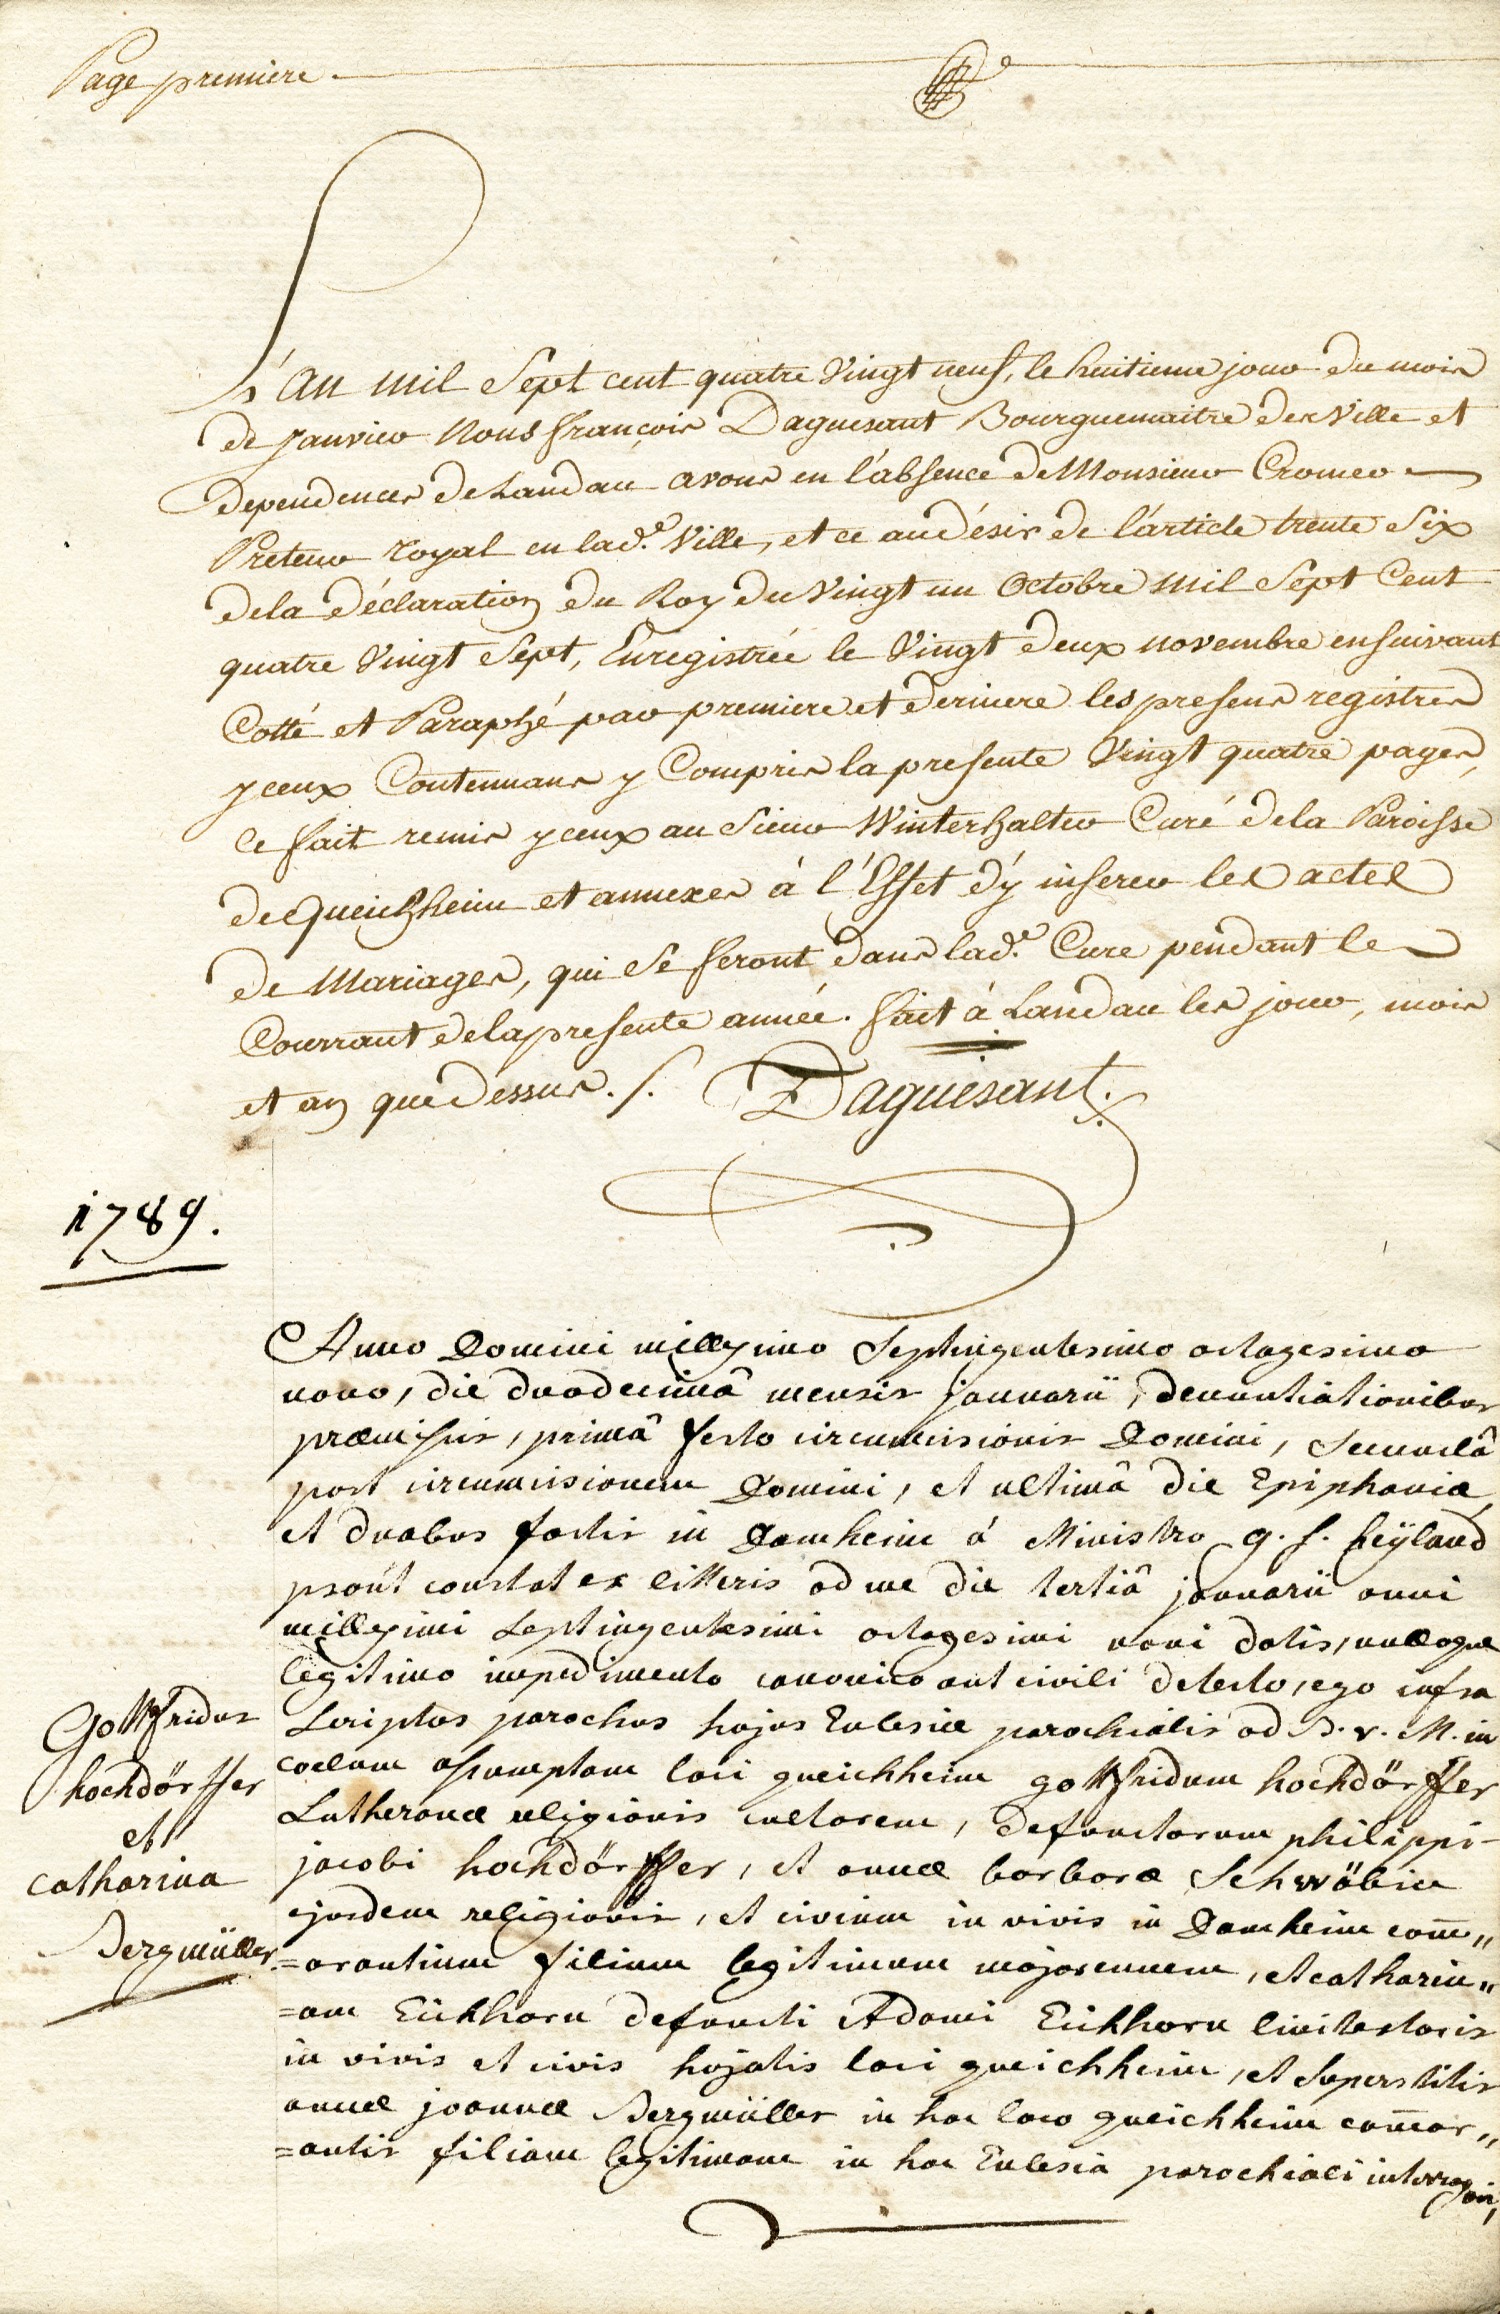 Page premiere.
L'an mil Sept cent quatre Vingt neuf, le huitieme jour du mois
de Janvier Nous françois Daguesant Bourguemaitre des Ville et
Dependences de Landau avons en l'absence de Monsieur Cromer
Preteur royal en lad.e Ville, et ce au désir de l'article trente Six
de la déclaration du Roy du Vingt un Octobre mil Sept Cent
quatre Vingt Sept, Enregistrée le Vingt deux novembre ensuivant
Cotté et Paraphé par premiere et derniere les presens registres
yceux Contennans y Compris la presente Vingt quatre pages,
Ce fait remis yceux au Sieur Winterhalter Curé de la Paroisse
de Queichheim et annexes à l'Effet d'y inserer les actes
de Mariages, qui Se feront dans lad.e Cure pendant le
Courrant de la presente année. fait à Landau les jour, mois
et an que dessus. /.
Daguesant.
1789.
Anno Domini millesimo Septingentesimo octogesimo
nono, die duodecimâ mensis januarii, denuntiationibus
præmissis, primâ festo circumcisionis Domini, Secundâ
post circumcisionem Domini, et ultimâ die Epiphaniæ,
et duabus factis in Damheim à Ministro G. f. heÿland
prout constat ex litteris ad me die tertiâ januarii anni
millesimi Septingentesimi octogesimi noni datis, nulloque
legitimo impedimento canonico aut civili detecto, ego infra
Scriptus parochus hujus Eclesiæ parochialis ad B. v. M. in
coelum assumptam loci queichheim gottfridum hochdörffer
Lutheranæ religionis cultorem, defunctorum philippi
jacobi hochdörffer, et annæ barbaræ Schwäbin
ejusdem religionis, et civium in vivis in Damheim com̄„
=orantium filium legitimum majorennem, et catharin„
=am Eichhorn defuncti Adami Eichhorn
in vivis et civis hujatis loci queichheim, et Superstitis
annæ joannæ Bergmüller in hoc loco queichheim com̄or„
=antis filiam legitimam in hac Eclesia parochiali interrogavi,
Gottfridus
hochdörffer
et
catharina
Bergmüller.